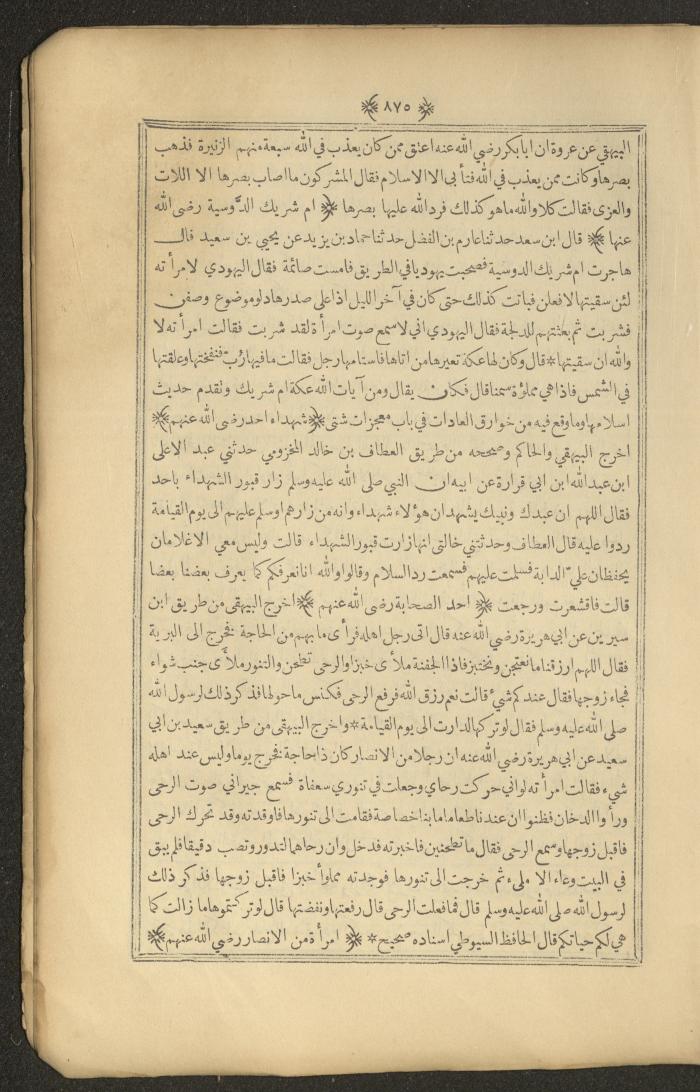 ﴿ ٨٧٥ ﴾
البيهقي عن عروة ان ابا بكر رضي الله عنه اعتق ممن كان يعذب في الله سبعة منهم الزنيرة فذهب
بصرها وكانت ممن يعذب في الله فتأبى الا الاسلام فقال المشركون ما اصاب بصرها الا اللات
والعزى فقالت كلا والله ما هو كذلك فرد الله عليها بصرها ﴿ ام شريك الدَّوسية رضى الله
عنها ﴾ قال ابن سعد حدثنا عارم بن الفضل حدثنا حماد بن يزيد عن يحيى بن سعيد قال
هاجرت ام شريك الدوسية فصحبت يهوديا في الطريق فامست صائمة فقال اليهودي لامرأته
لئن سقيتها لافعلن فباتت كذلك حتى كان في آخر الليل اذا على صدرها دلو موضوع وصفن
فشربت ثم بعثتهم للدلجة فقال اليهودي اني لاسمع صوت امرأة لقد شربت فقالت امرأته لا
والله ان سقيتها * قال وكان لها عكة تعيرها من اتاها فاستامها رجل فقالت ما فيها رُبّ فنفختها وعلقتها
في الشمس فاذا هي مملؤة سمنا قال فكان يقال ومن آيات الله عكة ام شريك وتقدم حديث
اسلامها وما وقع فيه من خوارق العادات في باب معجزات شتى ﴿ شهداء احد رضى الله عنهم ﴾
اخرج البيهقي والحاكم وصححه من طريق العطاف بن خالد المخزومي حدثني عبد الاعلى
ابن عبد الله ابن ابي قرارة عن ابيه ان النبي صلى الله عليه وسلم زار قبور الشهداء باحد
فقال اللهم ان عبدك ونبيك يشهد ان هؤلاء شهداء وانه من زارهم او سلم عليهم الى يوم القيامة
ردوا عليه قال العطاف وحدثتني خالتى انها زارت قبور الشهداء قالت وليس معي الا غلامان
يحفظان علي ّ الدابة فسلمت عليهم فسمعت رد السلام وقالوا والله انا نعرفكم كما يعرف بعضنا بعضا
قالت فاقشعرت ورجعت ﴿ احد الصحابة رضى الله عنهم ﴾ اخرج البيهقى من طريق ابن
سيرين عن ابي هريرة رضي الله عنه قال اتى رجل اهله فرأى ما بهم من الحاجة فخرج الى البرية
فقال اللهم ارزقنا ما نعتجن ونختبز فاذا الجفنة ملأى خبزا والرحى تطحن والتنور ملأى جنب شواء
فجاء زوجها فقال عندكم شيء قالت نعم رزق الله فرفع الرحى فكنس ما حولها فذكر ذلك لرسول الله
صلى الله عليه وسلم فقال لو تركها لدارت الى يوم القيامة * واخرج البيهقى من طريق سعيد بن ابي
سعيد عن ابي هريرة رضي الله عنه ان رجلا من الانصار كان ذا حاجة فخرج يوما وليس عند اهله
شيء فقالت امرأته لو اني حركت رحاي وجعلت في تنوري سعفاة فسمع جيراني صوت الرحى
ورأوا الدخان فظنوا ان عندنا طعاما ما بنا خصاصة فقامت الى تنورها فاوقدته وقد تحرك الرحى
فاقبل زوجها وسمع الرحى فقال ما تطحنين فاخبرته فدخل وان رحاهما لتدور وتصب دقيقا فلم يبق
في البيت وعاء الا ملىء ثم خرجت الى تنورها فوجدته مملوأ خبزا فاقبل زوجها فذكر ذلك
لرسول الله صلى الله عليه وسلم قال فما فعلت الرحى قال رفعتها ونفضتها قال لو تركتموها ما زالت كما
هي لكم حياتكم قال الحافظ السيوطي اسناده صحيح * ﴿ امرأة من الانصار رضي الله عنهم ﴾